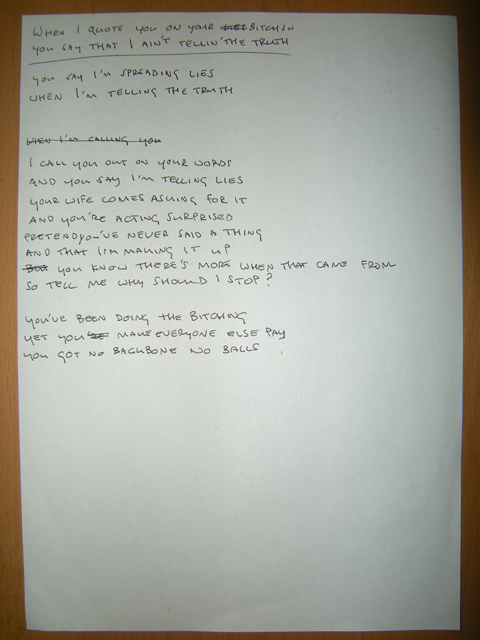 WHEN I QUOTE YOU ON YOUR BITCHIN
YOU SAY THAT I AIN'T TELLIN' THE TRUTH
YOU SAY I'M SPREADING LIES
WHEN I'M TELLING THE TRUTH
WHEN I'M CALLING YOU
I CALL YOU OUT ON YOUR WORDS
AND YOU SAY I'M TELLING LIES
YOUR WIFE COMES ASKING FOR IT
AND YOU'RE ACTING SURPRISED
PRETEND YOU'VE NEVER SAID A THING
AND THAT I'M MAKING IT UP
BUT YOU KNOW THERE'S MORE WHEN THAT CAME FROM
SO TELL ME WHY SHOULD I STOP?
YOU'VE BEEN DOING THE BITCHING
YET YOU'RE MAKE EVERYONE ELSE PAY
YOU GOT NO BACKBONE NO BALLS